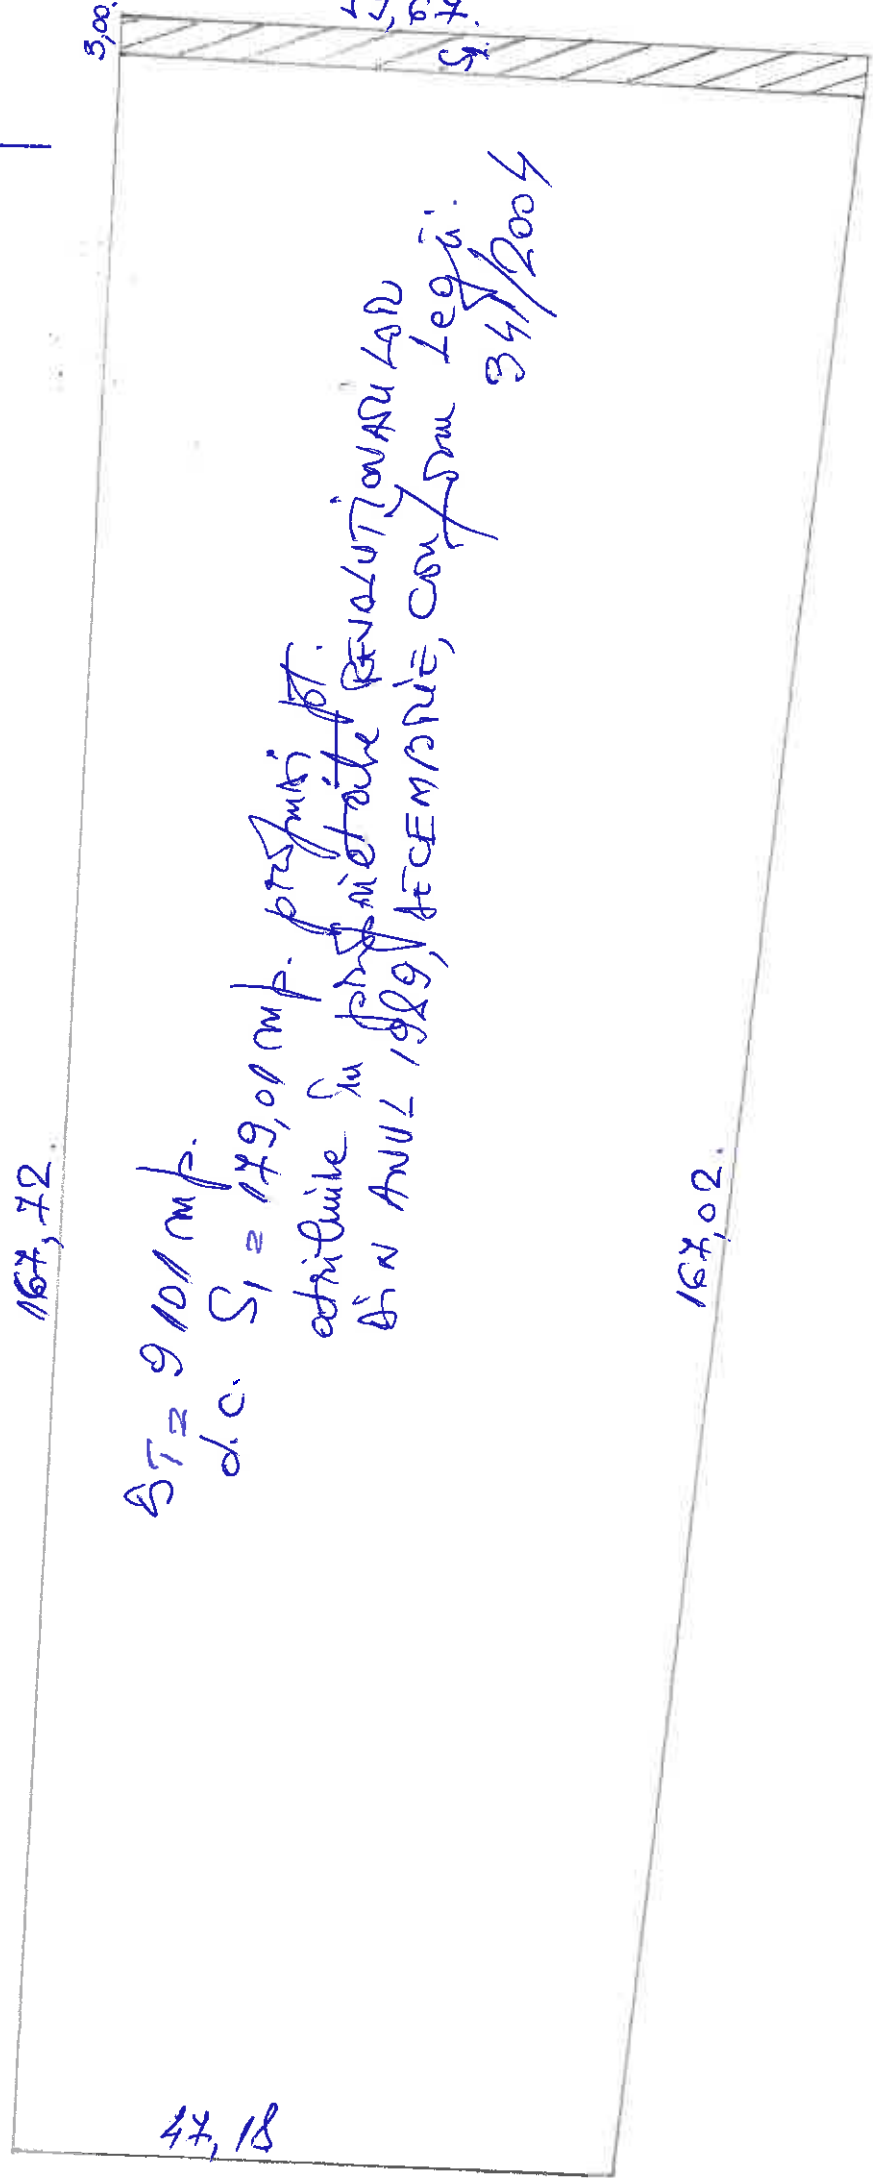 167,72
3,00.
ST = 9101 mp.
d.c. S1 = 179,01 mp. propuși pt.
atribuire în proprietate REVOLUȚIONARILOR
DIN ANUL 1989, DECEMBRIE, conform Legii.
341/2004
S1
47,18
167,02.